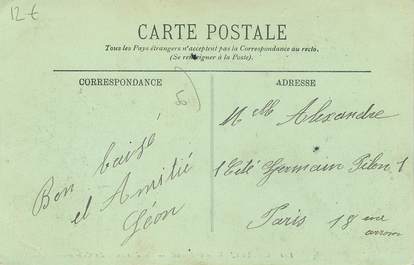 12€
CARTE POSTALE
Tous les Pays étrangers n'acceptent pas la Correspondance au recto.
(Se renseigner à la Poste).
CORRESPONDANCE
ADRESSE
Bon baisé
et Amitié
Léon
Alexandre
1 Cité Germain Pilon 1
Paris 18 eme
arrom